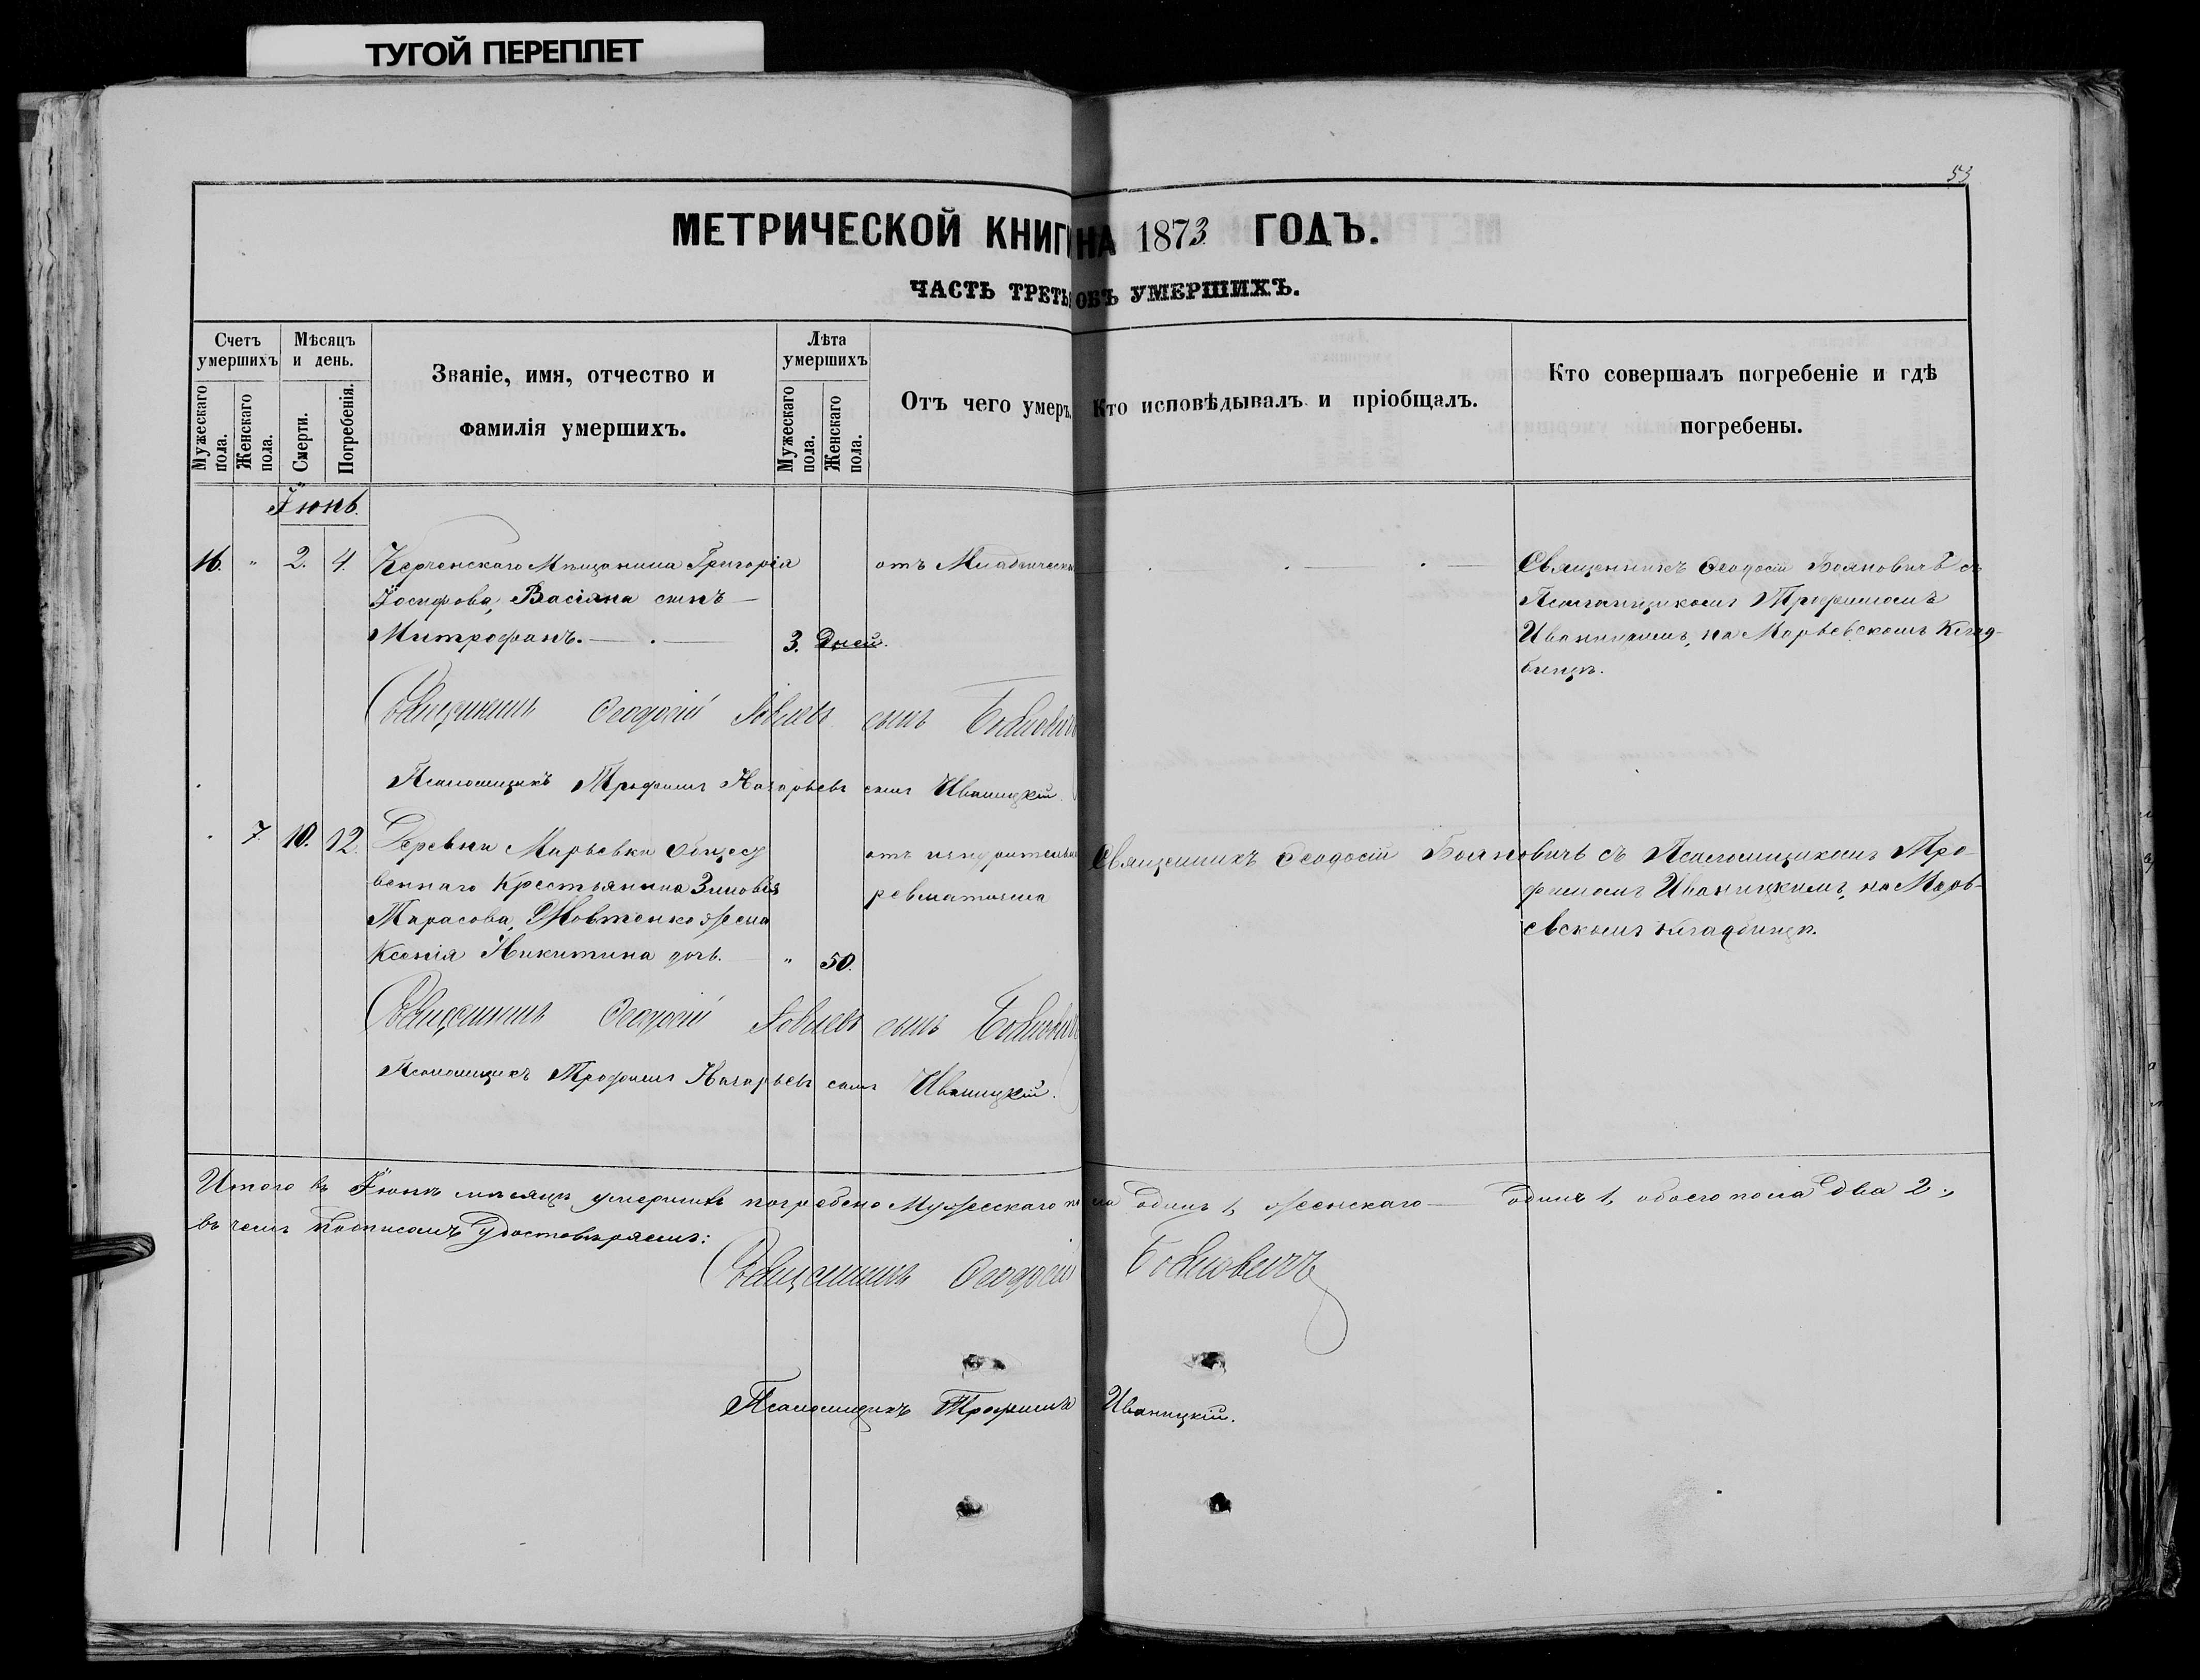 ТУГОЙ ПЕРЕПЛЕТ
53
МЕТРИЧЕСКОЙ КНИГИ НА 1873 ГОДЪ.
ЧАСТЬ ТРЕТЬ ОБЪ УМЕРШИХЪ.
Счетъ умершихъ
Мужескаго пола.
Женскаго пола.
Мѣсяцъ и день.
Смерти.
Погребенія.
Званіе, имя, отчество и
фамилія умершихъ.
Лѣта умершихъ
Мужескаго пола.
Женскаго пола.
Отъ чего умеръ.
Кто исповѣдывалъ и пріобщалъ.
Кто совершалъ погребеніе и гдѣ
погребены.
Іюнь.
16. " 2. 4. Керченскаго Мѣщанина Григорія
Іосифова, Васіяна сынъ
Митрофанъ. 3. Дней.
отъ Младенческ
Священникъ Ѳеодосій Бояновичъ съ
Псаломщикомъ Трофимомъ
Иваницкимъ, на Марьевскомъ Клад-
бищѣ.
Священникъ Ѳеодосій сынъ Бояновичъ
Псаломщикъ Трофимъ Назарьевъ сынъ Иваницкій.
7. 10. 12. Деревни Марьевки Общест
веннаго Крестьянина Зиновія
Тарасова, Жовтенко жена
Ксенія Никитина дочь. " 50.
отъ изнурительн
ревматизма
Священникъ Ѳеодосій Бояновичъ съ Псаломщикомъ Тро-
фимомъ Иваницкимъ, на Марь-
евскомъ кладбищѣ.
Священникъ Ѳеодосій сынъ Бояновичъ
Псаломщикъ Трофимъ Назарьевъ сынъ Иваницкій.
Итого въ Іюнѣ мѣсяцѣ умершихъ погребено Мужескаго пола одинъ 1, женскаго — одинъ 1, обоего пола два 2.,
въ чемъ подписомъ удостовѣряемъ:
Священникъ Ѳеодосій Бояновичъ
Псаломщикъ Трофимъ Иваницкій.